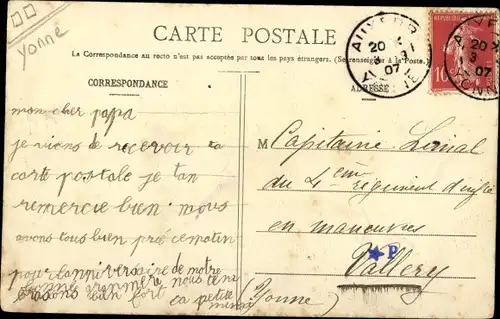 Yonne
CARTE POSTALE
La Correspondance au recto n'est pas acceptée par tous les pays étrangers. (Se renseigner à la Poste.)
CORRESPONDANCE
ADRESSE
mon cher papa
je viens de recevoir ta
carte postale je tan
remercie bien nous
avons tous bien prié ce matin
pour l'anniversaire de notre
bonne granmère nous te
brasons bien fort ta petite
M Capitaine
du 4ème régiment
en manœuvres
P
Vallery
(Yonne)
20
07
10
20
07
YONNE